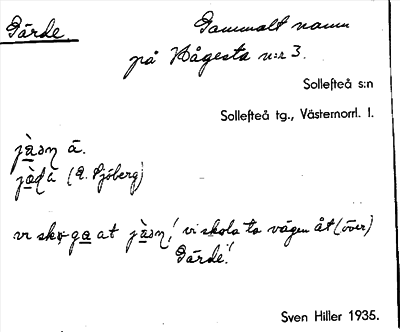 Gärde.
Gammalt namn
på Hågesta n:r 3.
Sollefteå s:n
Sollefteå tg., Västernorrl. l.
jà̱ən ä.
(A. Sjöberg)
at jà̱ən! vi skola ta vägen åt (över)
Gärde!
Sven Hiller 1935.